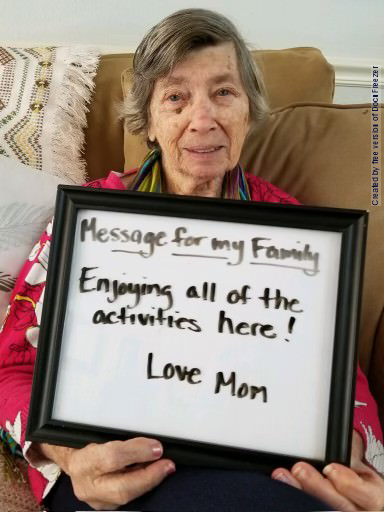 Message for my Family
Enjoying all of the
activities here!
Love Mom
Created by free version of DocuFreezer